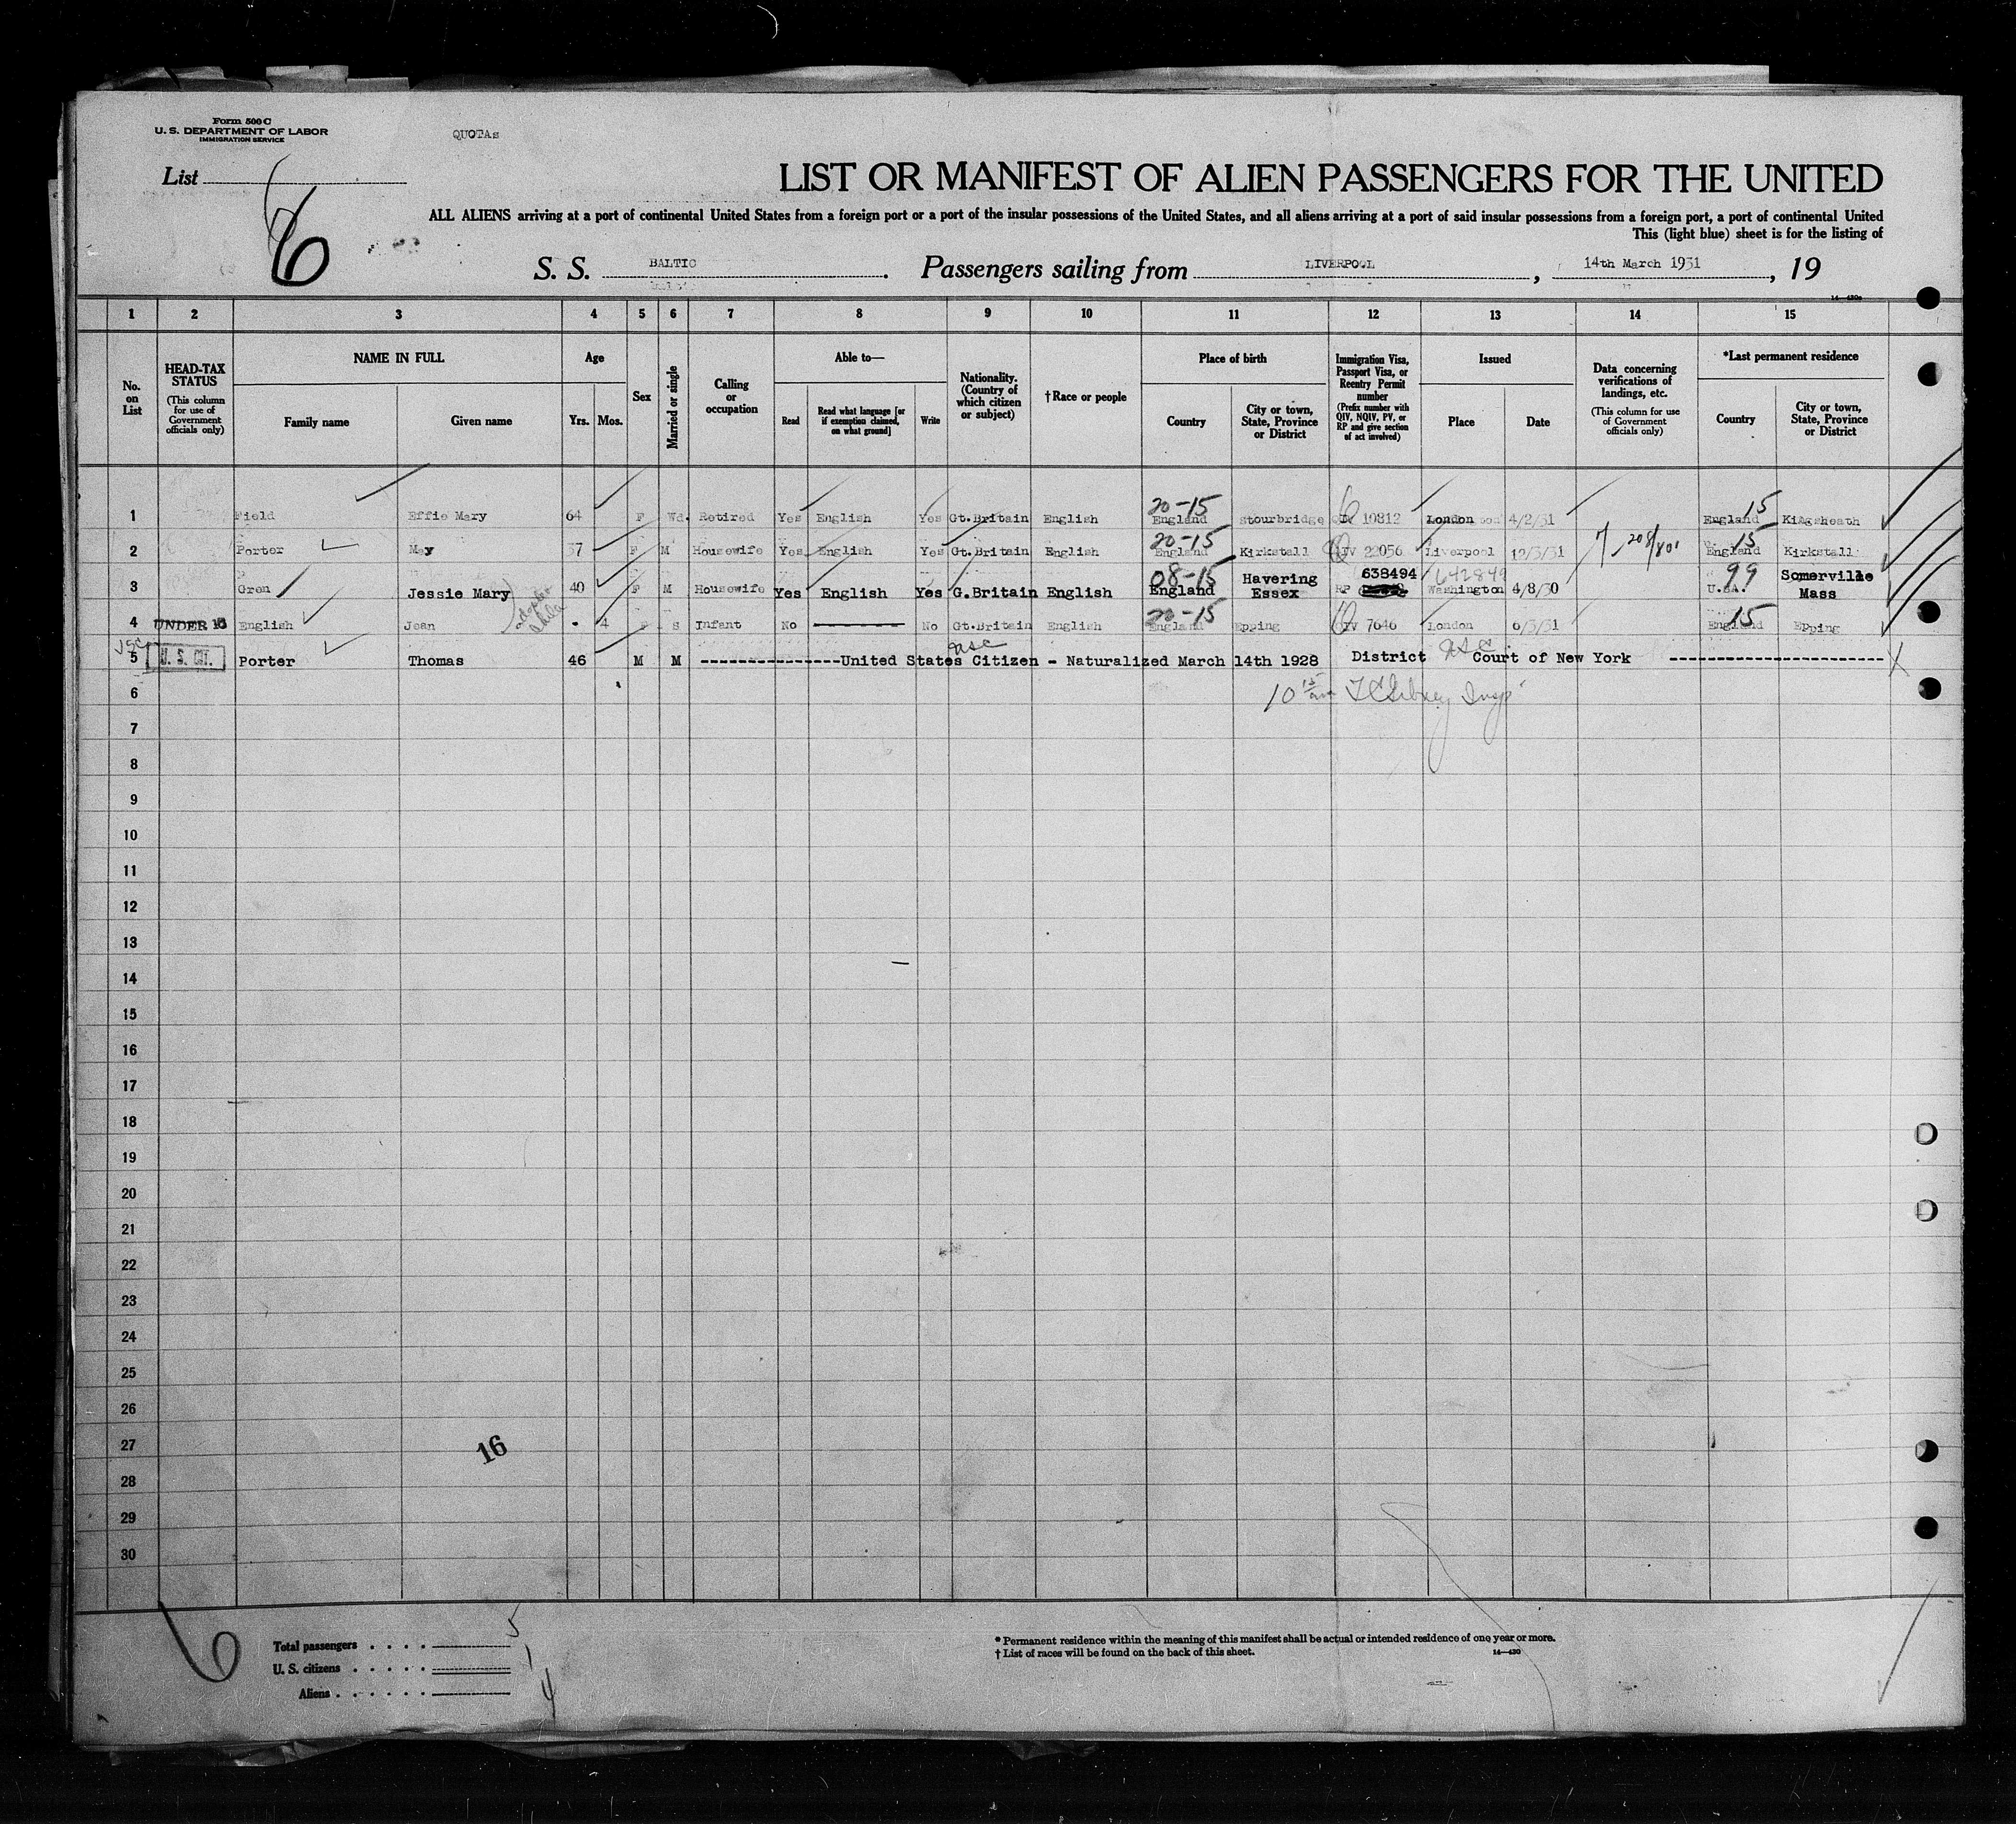 Form 500 C
U. S. DEPARTMENT OF LABOR
IMMIGRATION SERVICE
QUOTAs
List
6
LIST OR MANIFEST OF ALIEN PASSENGERS FOR THE UNITED
ALL ALIENS arriving at a port of continental United States from a foreign port or a port of the insular possessions of the United States, and all aliens arriving at a port of said insular possessions from a foreign port, a port of continental United
This (light blue) sheet is for the listing of
S. S. BALTIC. Passengers sailing from LIVERPOOL, 14th March 1931, 19
1 2 3 4 5 6 7 8 9 10 11 12 13 14 15
No. on List
HEAD-TAX STATUS (This column for use of Government officials only)
NAME IN FULL
Family name
Given name
Age
Yrs. Mos.
Sex
Married or single
Calling or occupation
Able to—
Read
Read what language [or if exemption claimed, on what ground]
Write
Nationality. (Country of which citizen or subject)
†Race or people
Place of birth
Country
City or town, State, Province or District
Immigration Visa, Passport Visa, or Reentry Permit number (Prefix number with QIV, NQIV, PV, or RP and give section of act involved)
Issued
Place
Date
Data concerning verifications of landings, etc. (This column for use of Government officials only)
*Last permanent residence
Country
City or town, State, Province or District
20-15 6 15
1 Field Effie Mary 64 F Wd. Retired Yes English Yes Gt.Britain English England Stourbridge 10812 London 4/2/31 England Kingsheath
20-15 15
2 Porter May 37 F M Housewife Yes English Yes Gt.Britain English England Kirkstall 22056 Liverpool 12/3/31 England Kirkstall
08-15 Havering 638494 642849 99 Somerville
3 Gren Jessie Mary 40 F M Housewife Yes English Yes G.Britain English England Essex RP Washington 4/8/30 U.SA. Mass
adopted child
20-15 15
4 UNDER 16 English Jean 4 S Infant No No Gt.Britain English England Epping 7646 London 6/3/31 England Epping
5 U. S. CIT. Porter Thomas 46 M M ----------------United States Citizen - Naturalized March 14th 1928 District Court of New York ------------------------
6 10 15 am
7
8
9
10
11
12
13
14
15
16
17
18
19
20
21
22
23
24
25
26
27
28
29
30
16
6
Total passengers . . . . 5
U. S. citizens . . . . . 1
Aliens . . . . . . 4
* Permanent residence within the meaning of this manifest shall be actual or intended residence of one year or more.
† List of races will be found on the back of this sheet.
14—430